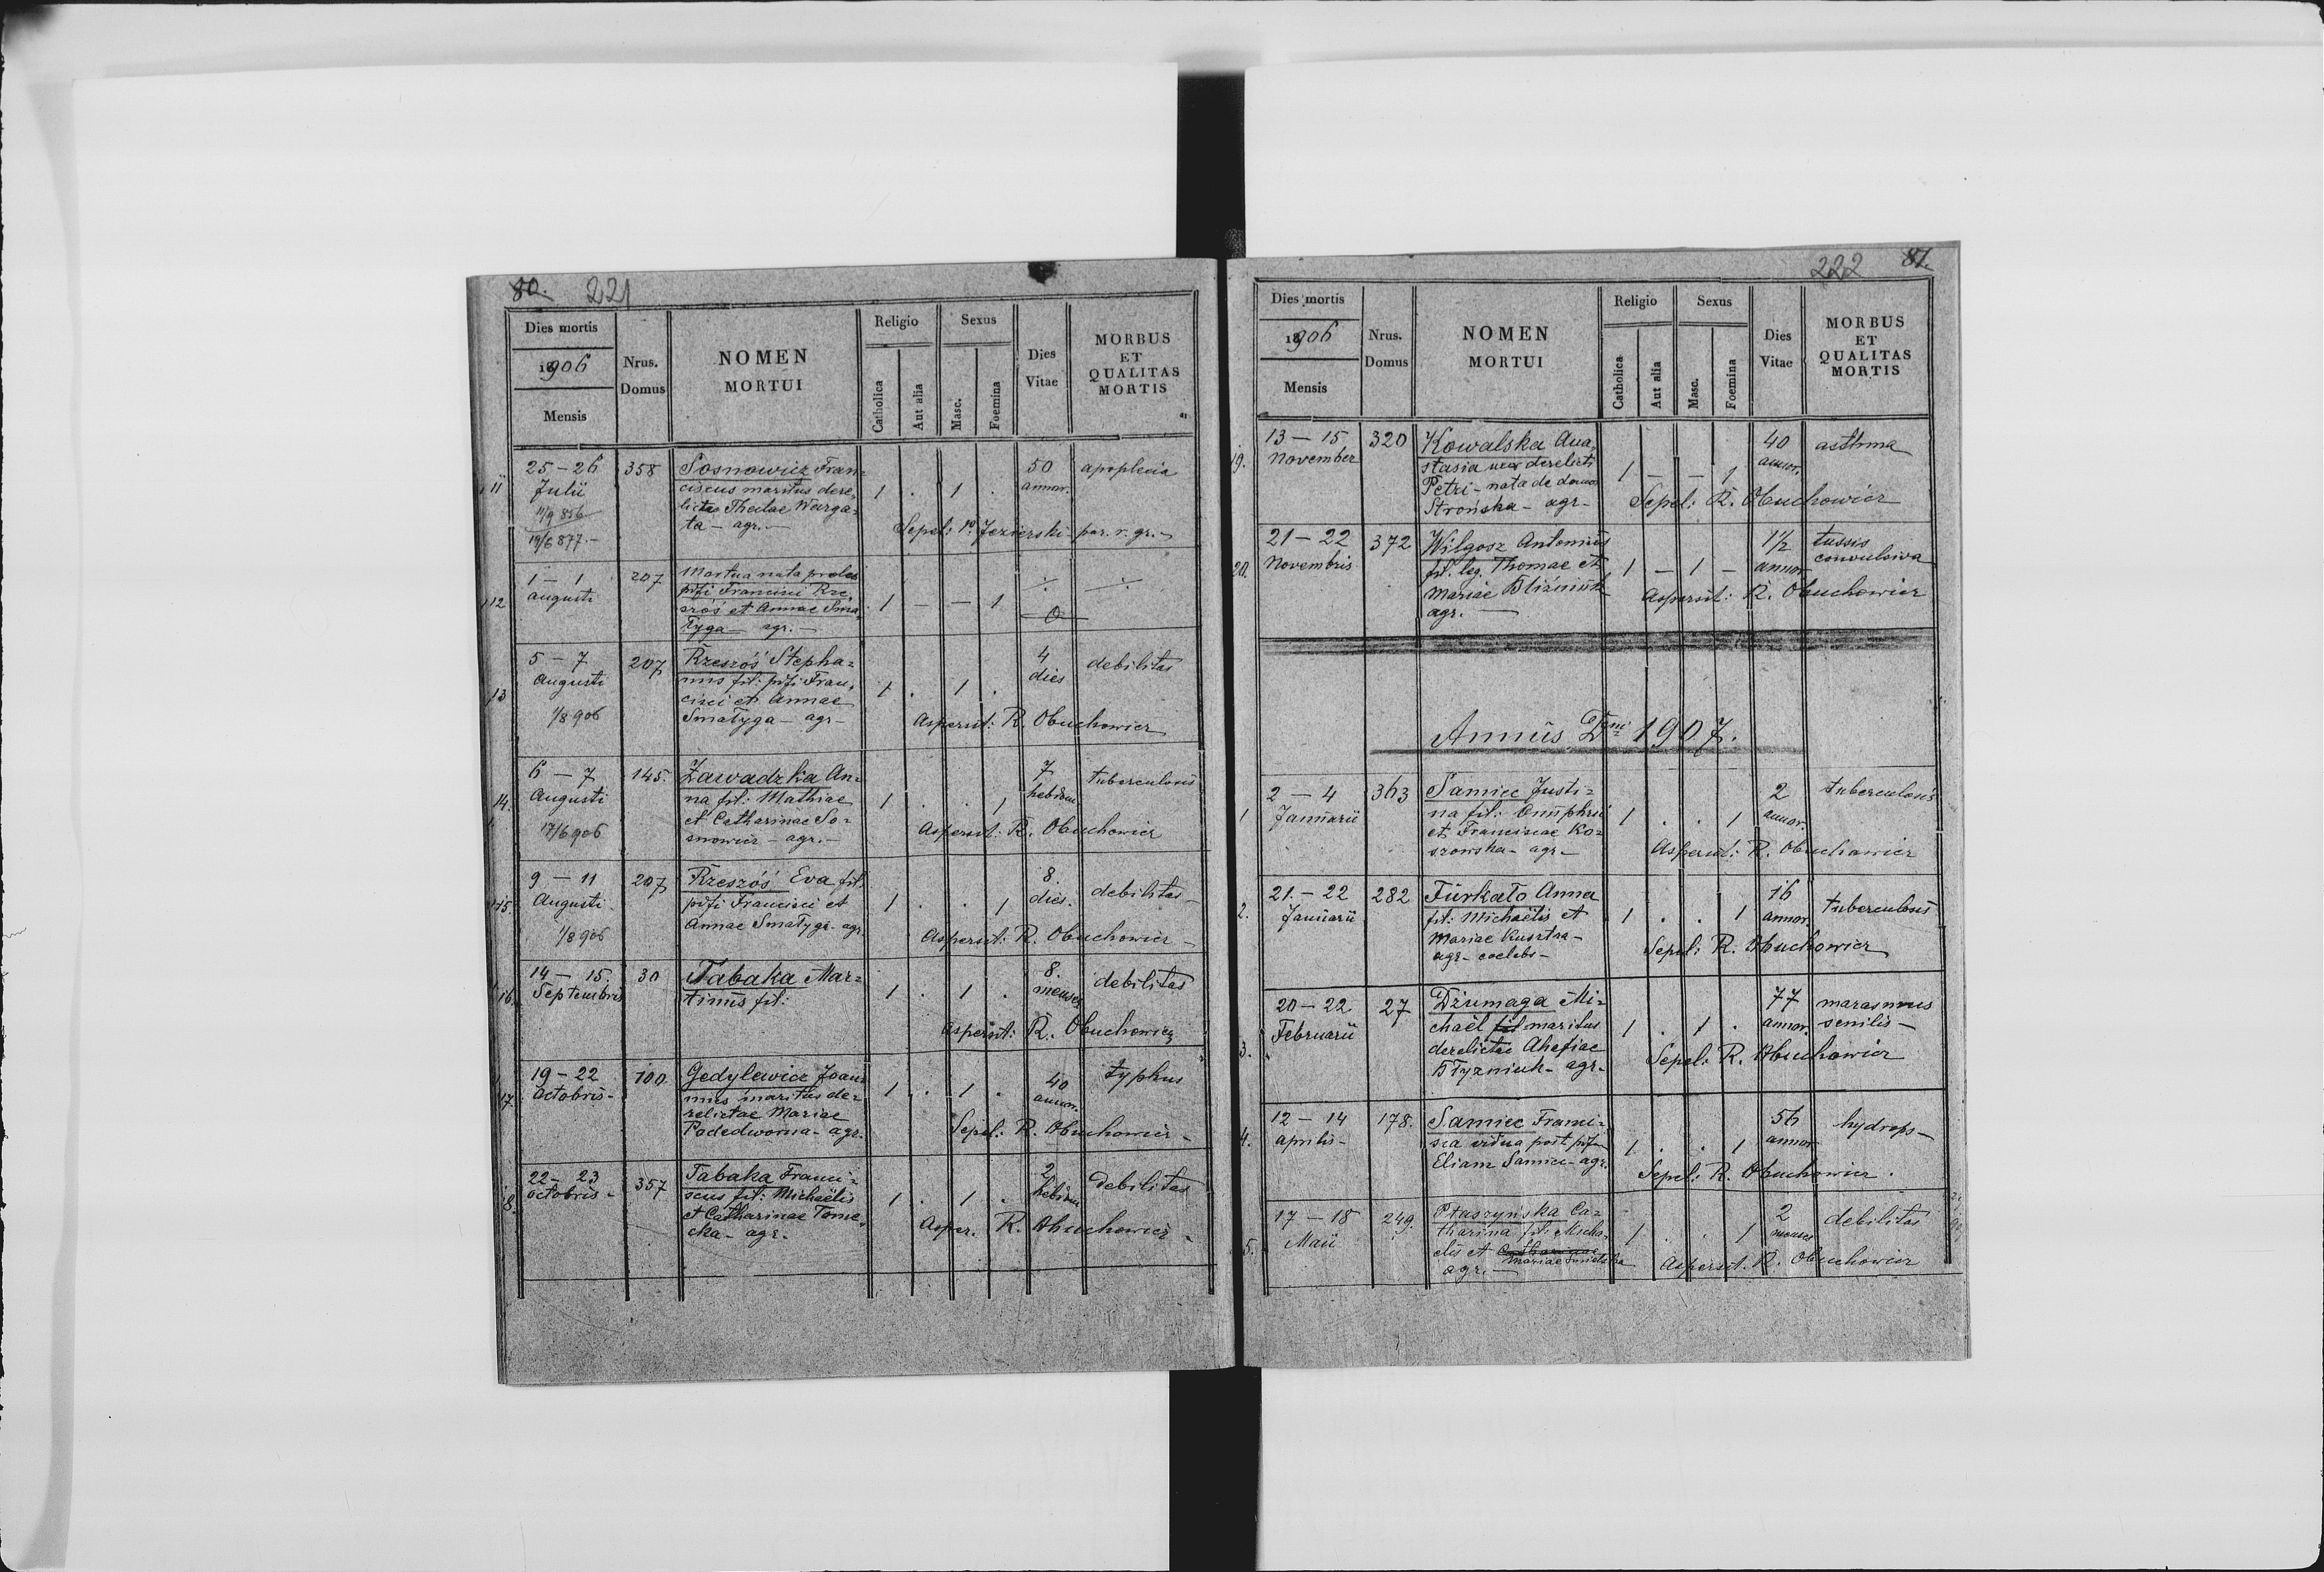 80. 221
Dies mortis
18906
Mensis
Nrus.
Domus
NOMEN
MORTUI
Religio
Catholica
Aut alia
Sexus
Masc.
Foemina
Dies
Vitae
MORBUS
ET
QUALITAS
MORTIS
11
25 – 26
Julii
11/9 856
19/6 877.–
358
Sosnowicz Fran=
ciscus maritus dere=
lictae Theclae Warga=
ta – agr. –
1 . 1 .
50
annor.
apoplexia
Sepel: Jezierski par. r. gr. –
12
1 – 1
augusti
207
Mortua nata proles
Francisci Rze=
szoś et Annae Sma=
łyga – agr. –
1 – – 1
0
13
5 – 7
Augusti
1/8 906
207
Rzeszoś Stepha=
nus fil: Fran=
cisci et Annae
Smałyga – agr –
1 . 1 .
4
dies
debilitas
Aspersit: R. Obuchowicz
14.
6 – 7
Augusti
17/6 906
145.
Zawadzka An=
na fil: Mathiae
et Catharinae So=
snowicz – agr. –
1 . . 1
7
hebdom
tuberculosis
Aspersit: R. Obuchowicz
15.
9 – 11
Augusti
1/8 906
207
Rzeszoś Eva fil.
Francisci et
Annae Smałyga – agr.
1 . . 1
8.
dies.
debilitas –
Aspersit: R. Obuchowicz –
16.
14 – 15.
Septembris
30
Tabaka Mar=
tinus fil:
1 . 1 .
8.
menses
debilitas
Aspersit: R. Obuchowicz
17.
19 – 22
Octobris –
100.
Gedylewicz Joan=
nes maritus de=
relictae Mariae
Podedworna – agr.
1 . 1 .
40
annor.
typhus
Sepel: R. Obuchowicz –
18.
22 – 23
Octobris –
357
Tabaka Franci=
scus fil: Michaëlis
et Catharinae Tome=
cka – agr.
1 . 1 .
2
hebdom
debilitas
Asper. R. Obuchowicz –
222 81.
Dies mortis
18906
Mensis
Nrus.
Domus
NOMEN
MORTUI
Religio
Catholica
Aut alia
Sexus
Masc.
Foemina
Dies
Vitae
MORBUS
ET
QUALITAS
MORTIS
19.
13 – 15
November
320
Kowalska Ana=
stasia uxor derelicti
Petri – nata de domo
Strońska – agr –
1 – – 1
40
annor.
asthma
Sepel: R. Obuchowicz
20.
21 – 22
Novembris
372
Wilgosz Antonius
fil. leg. Thomae et
Mariae Bliźniuk
agr. –
1 – 1 –
1½
annor
tussis
convulsiva
Aspersit: R. Obuchowicz
Annus Dni 1907.
1
2 – 4
Januarii
363
Samiec Justi=
na fil: Onuphrii
et Franciscae Ko=
szowska – agr –
1 . . 1
2
annor.
tuberculosis
Aspersit: R. Obuchowicz
2.
21. – 22
Januarii
282
Turkało Anna
fil: Michaëlis et
Mariae
agr – coelebs –
1 . . 1
16
annor
tuberculosis
Sepel: R. Obuchowicz
3.
20 – 22
Februarii
27
Dżumaga Mi=
chaël fil maritus
derelictae Ahafiae
Błyzniuk – agr –
1 . 1 .
77
annor.
marasmus
senilis –
Sepel: R. Obuchowicz
4.
12 – 14
Aprilis –
178.
Samiec Franci=
sca vidua post
Eliam Samiec – agr.
1 . . 1
56
annor
hydrops –
Sepel: R. Obuchowicz.
5.
17 – 18
Maii
249.
Ptaszyńska Ca=
tharina fil: Micha=
elis et Catharinae
Mariae
agr. –
1 . . 1
2
menses
debilitas
Aspersit. R. Obuchowicz